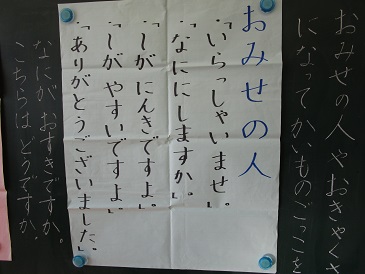 おみせの人やおきゃくさ
になってかいものごっこを
おみせの人
・「いらっしゃいませ。」
・「なににしますか。」
・「しが にんきですよ。」
・「しが やすいですよ」
・「ありがとうございました。」
なにが おすきですか。
こちらは どうですか。